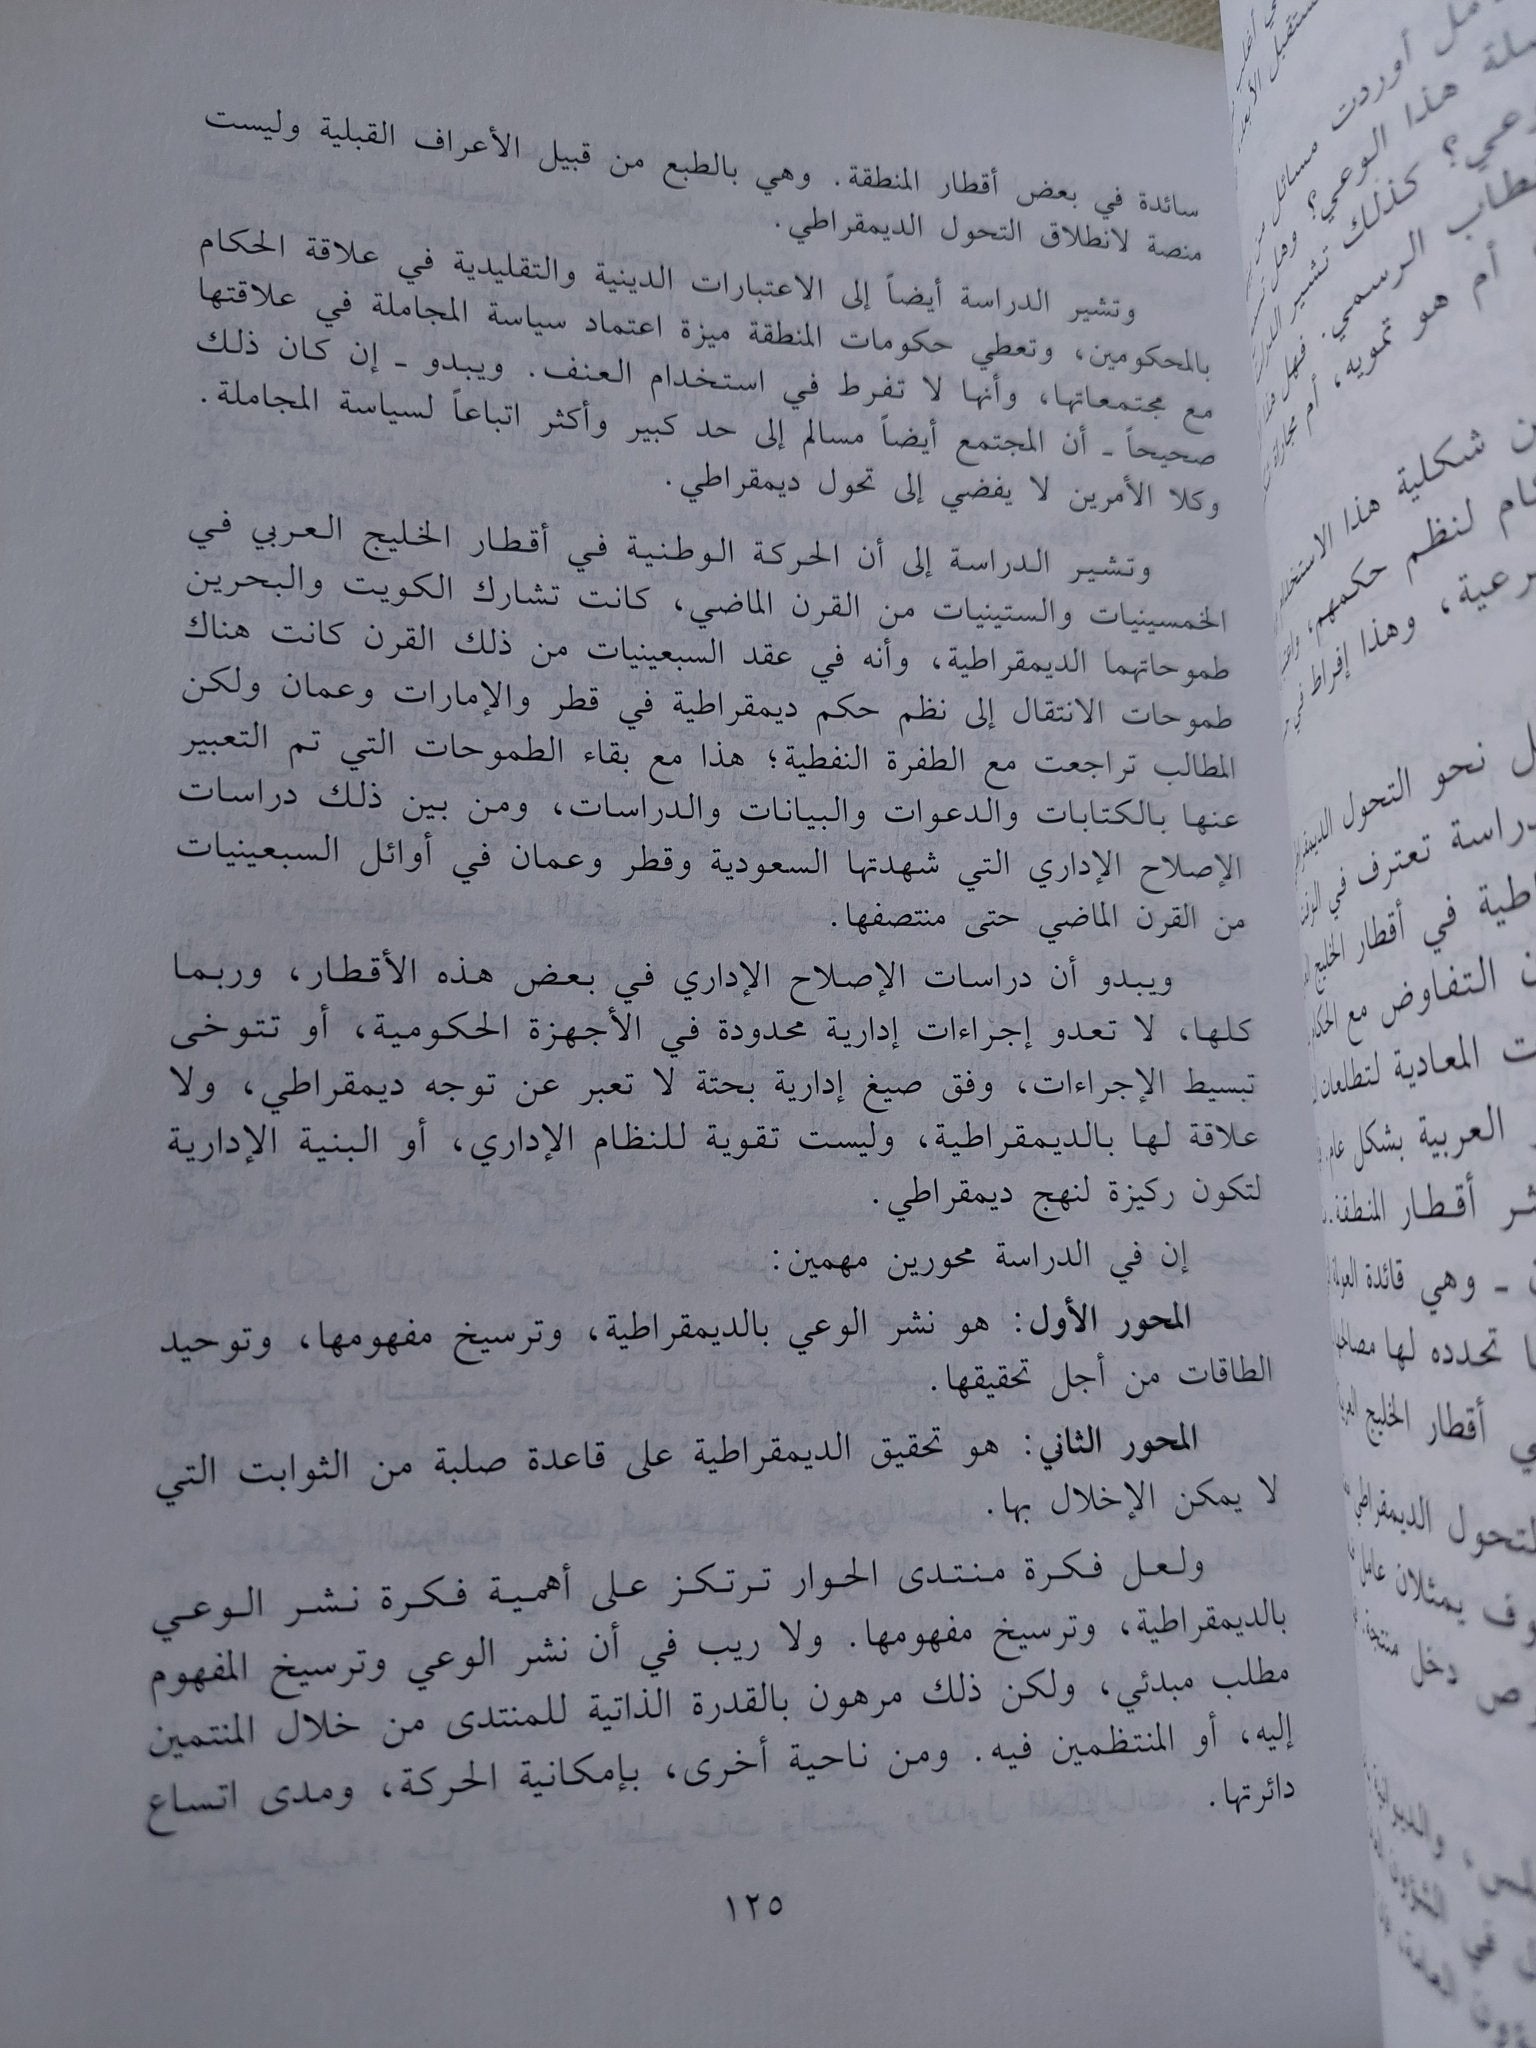 سائدة في بعض أقطار المنطقة. وهي بالطبع من قبيل الأعراف القبلية وليست
منصة لانطلاق التحول الديمقراطي.
وتشير الدراسة أيضاً إلى الاعتبارات الدينية والتقليدية في علاقة الحكام
بالمحكومين، وتعطي حكومات المنطقة ميزة اعتماد سياسة المجاملة في علاقتها
مع مجتمعاتها، وأنها لا تفرط في استخدام العنف. ويبدو ـ إن كان ذلك
صحيحاً ـ أن المجتمع أيضاً مسالم إلى حد كبير وأكثر اتباعاً لسياسة المجاملة.
وكلا الأمرين لا يفضي إلى تحول ديمقراطي.
وتشير الدراسة إلى أن الحركة الوطنية في أقطار الخليج العربي في
الخمسينيات والستينيات من القرن الماضي، كانت تشارك الكويت والبحرين
طموحاتهما الديمقراطية، وأنه في عقد السبعينيات من ذلك القرن كانت هناك
طموحات الانتقال إلى نظم حكم ديمقراطية في قطر والإمارات وعمان ولكن
المطالب تراجعت مع الطفرة النفطية؛ هذا مع بقاء الطموحات التي تم التعبير
عنها بالكتابات والدعوات والبيانات والدراسات، ومن بين ذلك دراسات
الإصلاح الإداري التي شهدتها السعودية وقطر وعمان في أوائل السبعينيات
من القرن الماضي حتى منتصفها.
ويبدو أن دراسات الإصلاح الإداري في بعض هذه الأقطار، وربما
كلها، لا تعدو إجراءات إدارية محدودة في الأجهزة الحكومية، أو تتوخى
تبسيط الإجراءات، وفق صيغ إدارية بحتة لا تعبر عن توجه ديمقراطي، ولا
علاقة لها بالديمقراطية، وليست تقوية للنظام الإداري، أو البنية الإدارية
لتكون ركيزة لنهج ديمقراطي.
إن في الدراسة محورين مهمين:
المحور الأول: هو نشر الوعي بالديمقراطية، وترسيخ مفهومها، وتوحيد
الطاقات من أجل تحقيقها.
المحور الثاني: هو تحقيق الديمقراطية على قاعدة صلبة من الثوابت التي
لا يمكن الإخلال بها.
ولعل فكرة منتدى الحوار ترتكز على أهمية فكرة نشر الوعي
بالديمقراطية، وترسيخ مفهومها. ولا ريب في أن نشر الوعي وترسيخ المفهوم
مطلب مبدئي، ولكن ذلك مرهون بالقدرة الذاتية للمنتدى من خلال المنتمين
إليه، أو المنتظمين فيه. ومن ناحية أخرى، بإمكانية الحركة، ومدى اتساع
دائرتها.
١٢٥